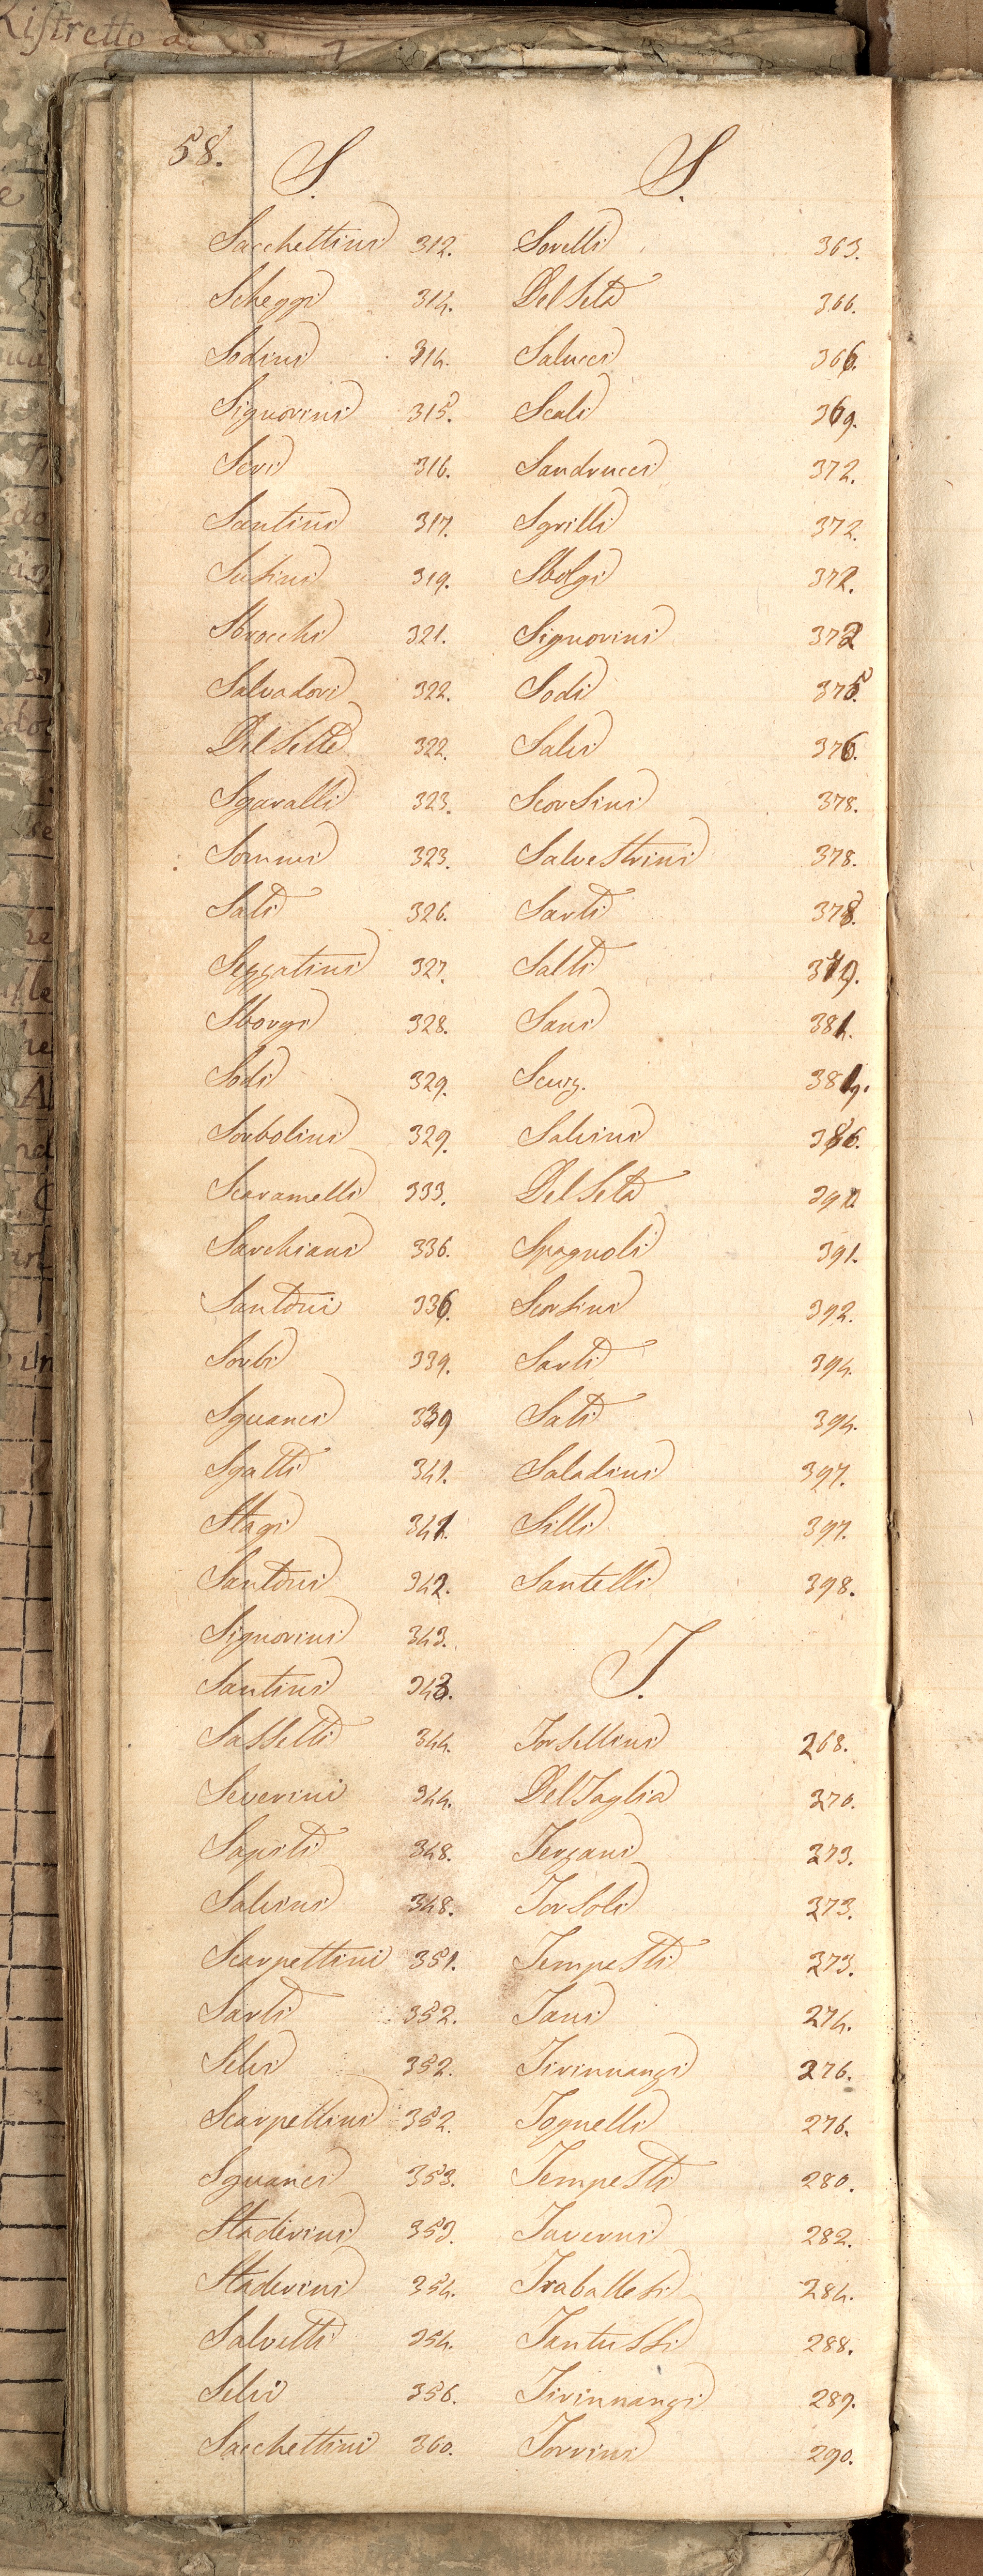 Ristretto de
58.
S.
Sacchettini 312.
Scheggi 314.
Sodini 314.
Signorini 315.
Seri 316.
Santini 317.
Susini 319.
Sbrocchi 321.
Salvadori 322.
Del Sette 322.
Sgaralli 323.
Sommi 323.
Sati 326.
Sezzatini 327.
Sborgi 328.
Sodi 329.
Sorbolini 329.
Scaramelli 333.
Sarchiani 336.
Santoni 336.
Sorbi 339.
Sguanci 339
Sgatti 341.
Stagi 341.
Santoni 342.
Signorini 343.
Santini 343.
Sassetti 344.
Severini 344.
Sapiti 348.
Salvini 348.
Scarpettini 351.
Sarti 352.
Selvi 352.
Scarpettini 352.
Sguanci 353.
Staderini 353.
Staderini 354.
Salvetti 354.
Selvi 356.
Sacchettini 360.
S.
Sorelli 363.
Del Seta 366.
Salucci 366.
Scali 369.
Sandrucci 372.
Sgrilli 372.
Sbolgi 372.
Signorini 372
Sodi 375.
Salvi 376.
Scorsini 378.
Salvestrini 378.
Sarti 378.
Salti 379.
Sani 381.
Scurz.
Salvini 386.
Del Seta
Spagnoli 391.
Scorsini 392.
Sarti 394.
Sati 394.
Saladini 397.
Silli 397.
Santelli 398.
T.
Torsellini 268.
Del Taglia 270.
Terzani 273.
Torsoli 273.
Tempesti 273.
Tani 274.
Tirinnanzi 276.
Tognelli 276.
Tempesti 280.
Taverni 282.
Traballesi 284.
Tantussi 288.
Tirinnanzi 289.
Torrini 290.